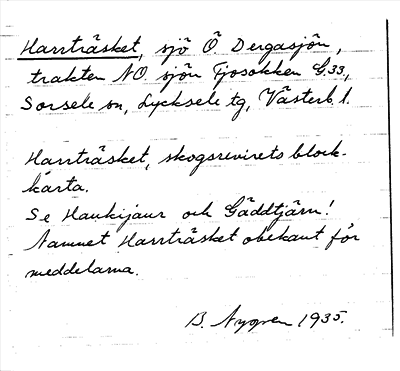 Harrträsket, sjö Ö Dergasjön,
trakten NO. sjön Tjosokken G.33,
Sorsele sn, Lycksele tg, Västerb. l.
Harrträsket, skogsrevirets block-
karta.
Se Haukijaur och Gäddtjärn!
Namnet Harrträsket obekant för
meddelarna.
B. Nygren 1935.